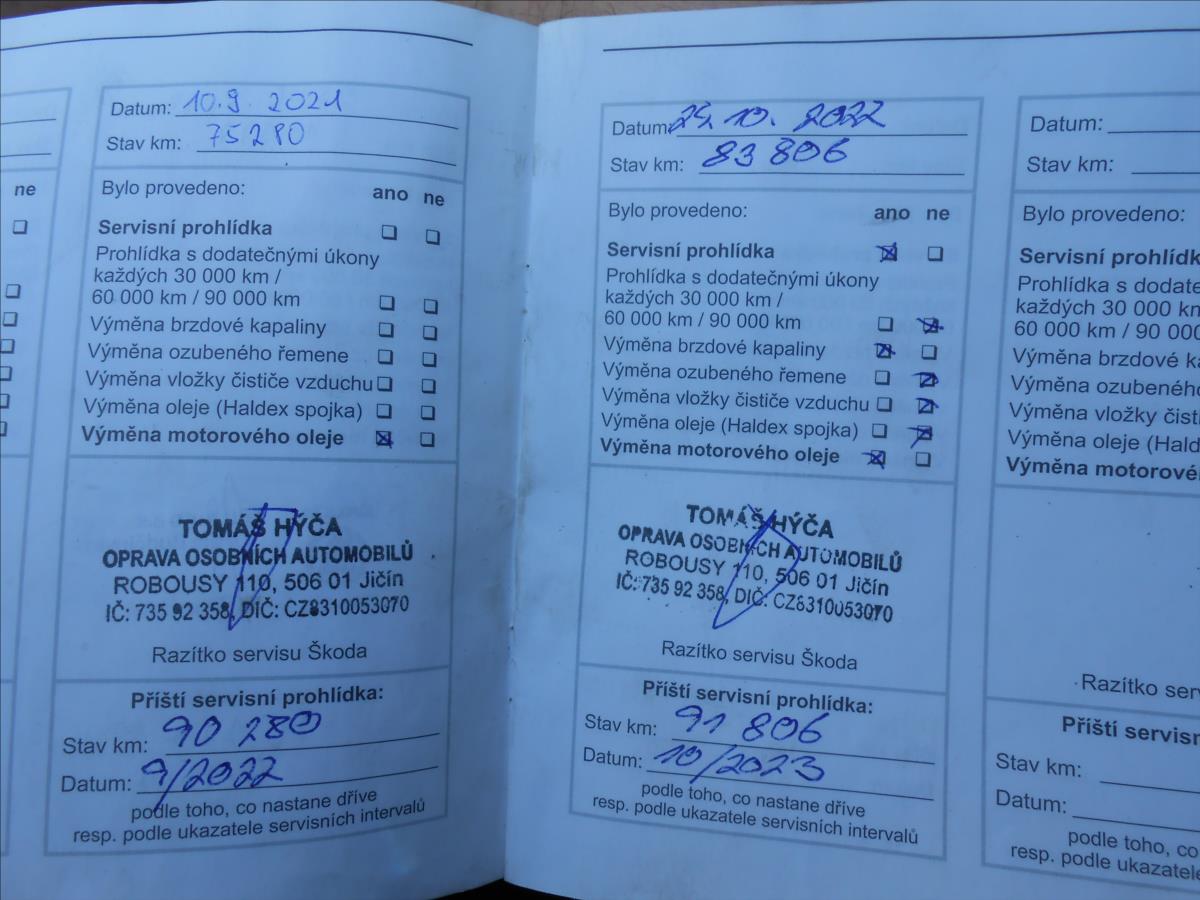 ne
Datum: 10.9. 2021
Stav km: 75280
Bylo provedeno: ano ne
Servisní prohlídka
Prohlídka s dodatečnými úkony
každých 30 000 km /
60 000 km / 90 000 km
Výměna brzdové kapaliny
Výměna ozubeného řemene
Výměna vložky čističe vzduchu
Výměna oleje (Haldex spojka)
Výměna motorového oleje
TOMÁŠ HÝČA
OPRAVA OSOBNÍCH AUTOMOBILŮ
ROBOUSY 110, 506 01 Jičín
IČ: 735 92 358, DIČ: CZ8310053070
Razítko servisu Škoda
Příští servisní prohlídka:
Stav km: 90 280
Datum: 9/2022
podle toho, co nastane dříve
resp. podle ukazatele servisních intervalů
Datum: 25.10. 2022
Stav km: 83 806
Bylo provedeno: ano ne
Servisní prohlídka
Prohlídka s dodatečnými úkony
každých 30 000 km /
60 000 km / 90 000 km
Výměna brzdové kapaliny
Výměna ozubeného řemene
Výměna vložky čističe vzduchu
Výměna oleje (Haldex spojka)
Výměna motorového oleje
TOMÁŠ HÝČA
OPRAVA OSOBNÍCH AUTOMOBILŮ
ROBOUSY 110, 506 01 Jičín
IČ: 735 92 358, DIČ: CZ8310053070
Razítko servisu Škoda
Příští servisní prohlídka:
Stav km: 91 806
Datum: 10/2023
podle toho, co nastane dříve
resp. podle ukazatele servisních intervalů
Datum:
Stav km:
Bylo provedeno:
Servisní prohlídk
Prohlídka s dodate
každých 30 000 km
60 000 km / 90 000
Výměna brzdové ka
Výměna ozubeného
Výměna vložky čisti
Výměna oleje (Hald
Výměna motorové
Razítko serv
Příští servisn
Stav km:
Datum:
podle toho, co
resp. podle ukazatele